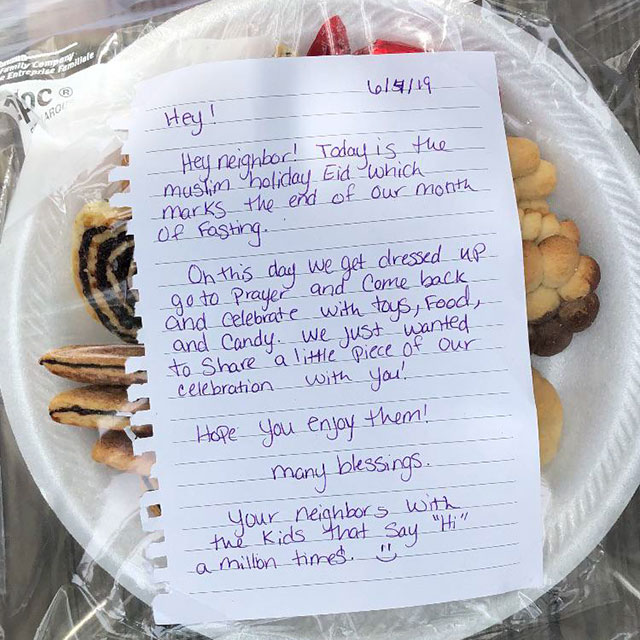 6/4/19
Hey!
Hey neighbor! Today is the
muslim holiday Eid which
marks the end of our month
of Fasting.
On this day we get dressed up
go to Prayer and Come back
and celebrate with toys, Food,
and Candy. we just wanted
to Share a little Piece of our
celebration with you!
Hope you enjoy them!
many blessings.
your neighbors with
the kids that say "Hi"
a million times. :)
Company
Entreprise Familiale
®